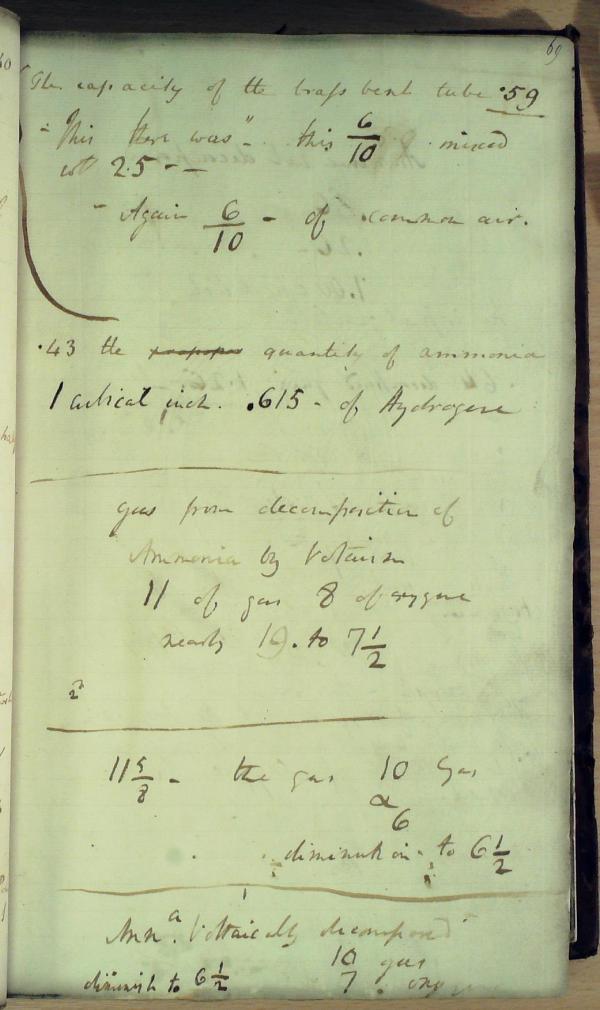 69
The capacity of the brass bent tube .59
"This there was" - this 6/10 mixed
with 2.5 - -
- Again 6/10 - of common air.
.43 the quantity of ammonia
1 cubical inch. .615 - of Hydrogene
gas from decomposition of
Ammonia by Voltaism
11 of gas 8 of oxygene
nearly 19. to 7 1/2
11 5/8 - the gas 10 Gas
6
diminution - to 6 1/2
Amn.a Voltaically decomposed
10 gas
diminish to 6 1/2 7 . oxy